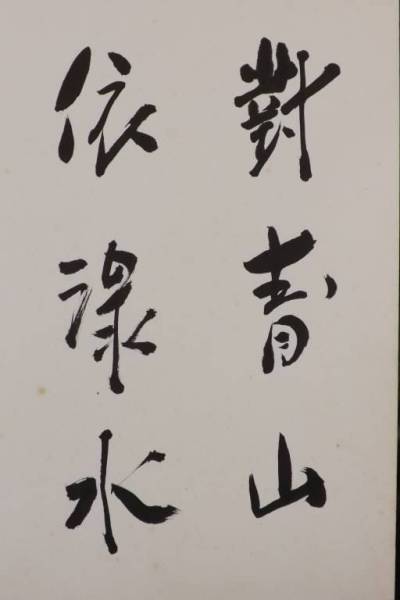 對青山
依淥水